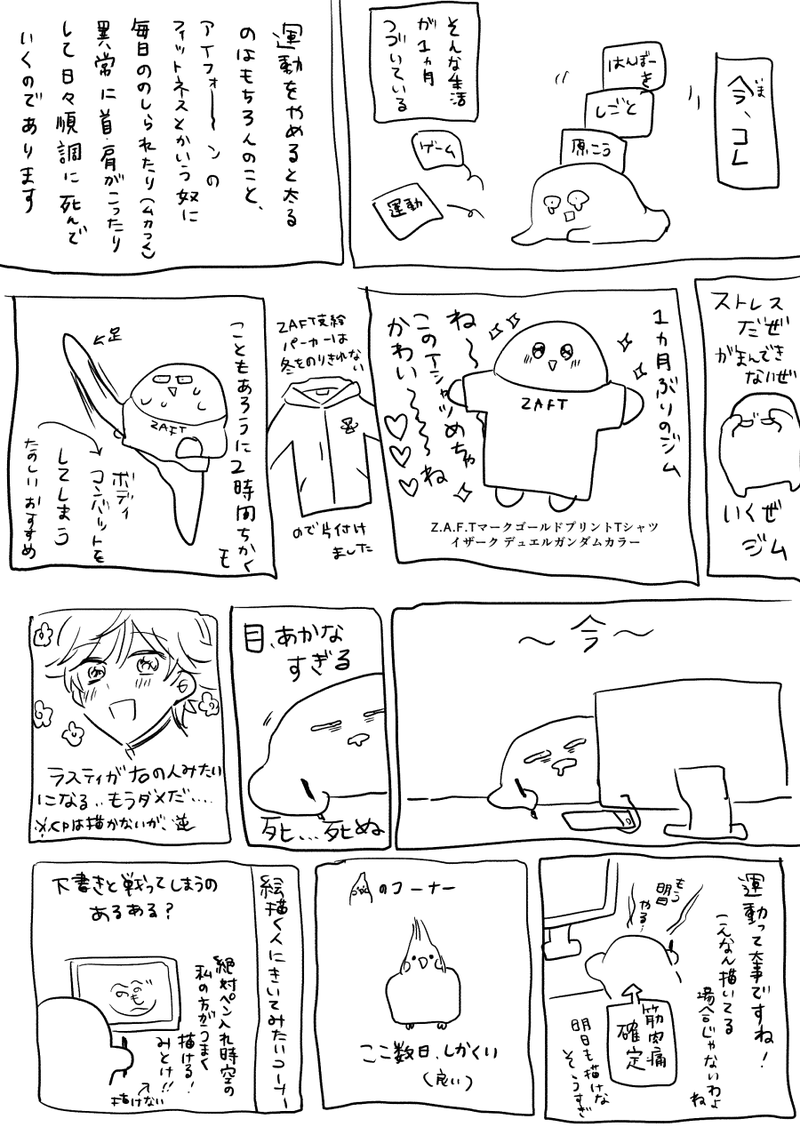 今、コレ
いま
はんばーを
しごと
原こう
そんな生活
が1ヵ月
つづいている
ゲーム
運動
運動をやめると太る
のはもちろんのこと、
アイフォ〜ンの
フィットネスとかいう奴に
毎日ののしられたり(ムカつく)
異常に首・肩がこったり
して日々順調に死んで
いくのであります
ストレス
だぜ
がまんでき
ないぜ
いくぜ
ジム
1ヵ月ぶりのジム
ね〜
このTシャツめちゃ
かわい〜〜〜ね
ZAFT
Z.A.F.TマークゴールドプリントTシャツ
イザーク デュエルガンダムカラー
ZAFT支給
パーカーは
冬をのりきれない
ので片付け
ました
こともあろうに2時間ちかく
も
足
ZAFT
ボディ
コンバットを
してしまう
たのしいおすすめ
〜今〜
目、あかな
すぎる
死…死ぬ
ラスティが右の人みたい
になる‥もうダメだ‥‥
※CPは描かないが、逆
運動って大事ですね!
こんなん描いてる
場合じゃないわよ
ね
もう
明日
やる…
筋肉痛
確定
明日も描けな
そうすぎ
のコーナー
ここ数日、しかくい
(良い)
絵描く人にきいてみたいコーナー
下書きと戦ってしまうの
あるある?
絶対ペン入れ時空の
私の方がうまく
描ける!
みとけ!!
描けない